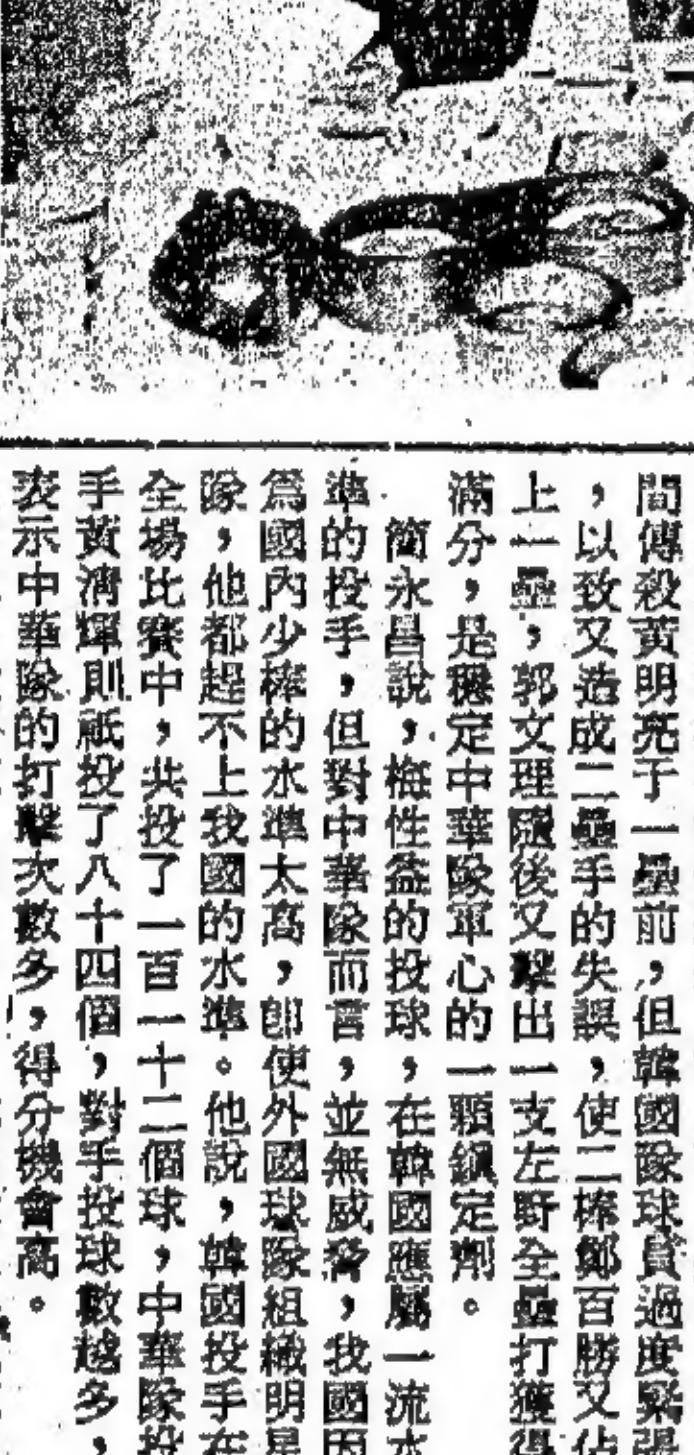 間傳殺黃明亮于一壘前，但韓國隊球員過度緊張
，以致又造成二壘手的失誤，使二棒鄭百勝又佔
上一壘，郭文理隨後又擊出一支左野全壘打獲得
滿分，是穩定中華隊軍心的一顆鎮定劑。
簡永昌說，梅性益的投球，在韓國應屬一流水
準的投手，但對中華隊而言，並無威脅，我國因
爲國內少棒的水準太高，卽使外國球隊組織明星
隊，他都趕不上我國的水準。他說，韓國投手在
全場比賽中，共投了一百一十二個球，中華隊投
手黃清輝則祇投了八十四個，對手投球數越多，
表示中華隊的打擊次數多，得分機會高。